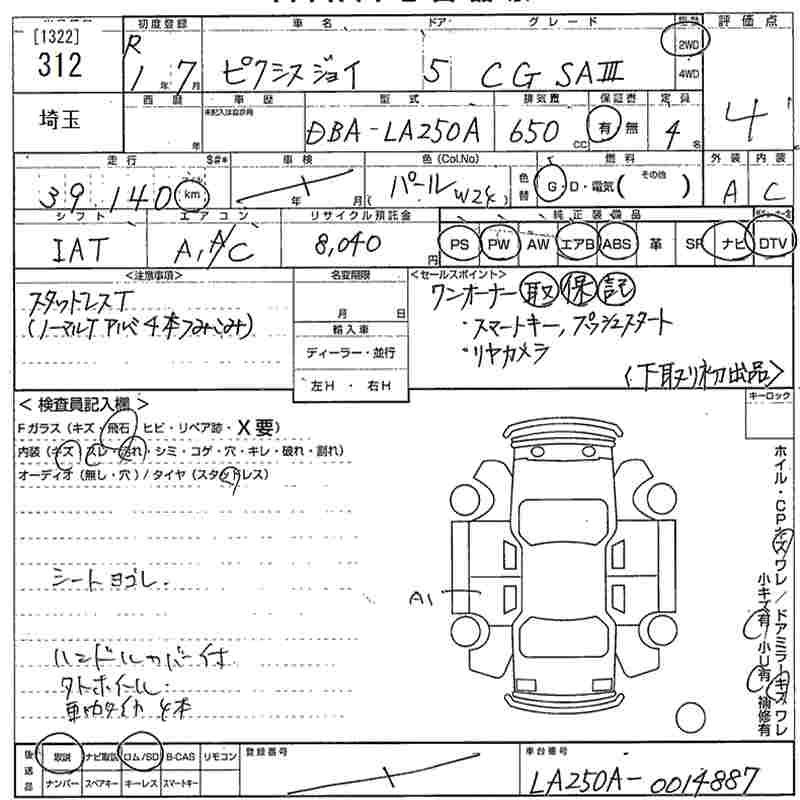 初度登録 車名 ドア グレード 駆動 評価点
[1322]
312
R
1年 7月 ピクシスジョイ 5 CG SAⅢ 2WD
4WD
4
埼玉
西暦 車歴 型式 排気量 保証書 定員
未記入は自家用
年 DBA-LA250A 650 CC 有・無 4名
走行 S#* 車検 色(Col.No) 燃料 外装 内装
39,140 km 年 月 パール W24 色替 G・D・電気( その他 ) A C
シフト エアコン リサイクル預託金 純正装備品
IAT A,A/C 8,040円 PS PW AW エアB ABS 革 SR ナビ DTV
<注意事項> 名変期限 <セールスポイント>
スタットレスT
(ノーマルT アルミ4本つみこみ)
月 日
輸入車
ディーラー・並行
左H・右H
ワンオーナー 取 保 記
・スマートキー,プッシュスタート
・リヤカメラ
〈下取り初出品〉
キーロック
<検査員記入欄>
Fガラス(キズ・飛石・ヒビ・リペア跡・X要)
内装(キズ・スレ・汚れ・シミ・コゲ・穴・キレ・破れ・割れ)
オーディオ(無し・穴)/タイヤ(スタッドレス)
シートヨゴレ.
ハンドルカバー付
タトホイール.
車内タイヤ 4本
A1
ホイル・CPキズワレ/ドアミラーキズワレ
小キズ有 小U有 補修有
後送品 取説 ナビ取説 ロム/SD B-CAS リモコン
ナンバー スペアキー キーレス スマートキー
登録番号
車台番号
LA250A-0014887